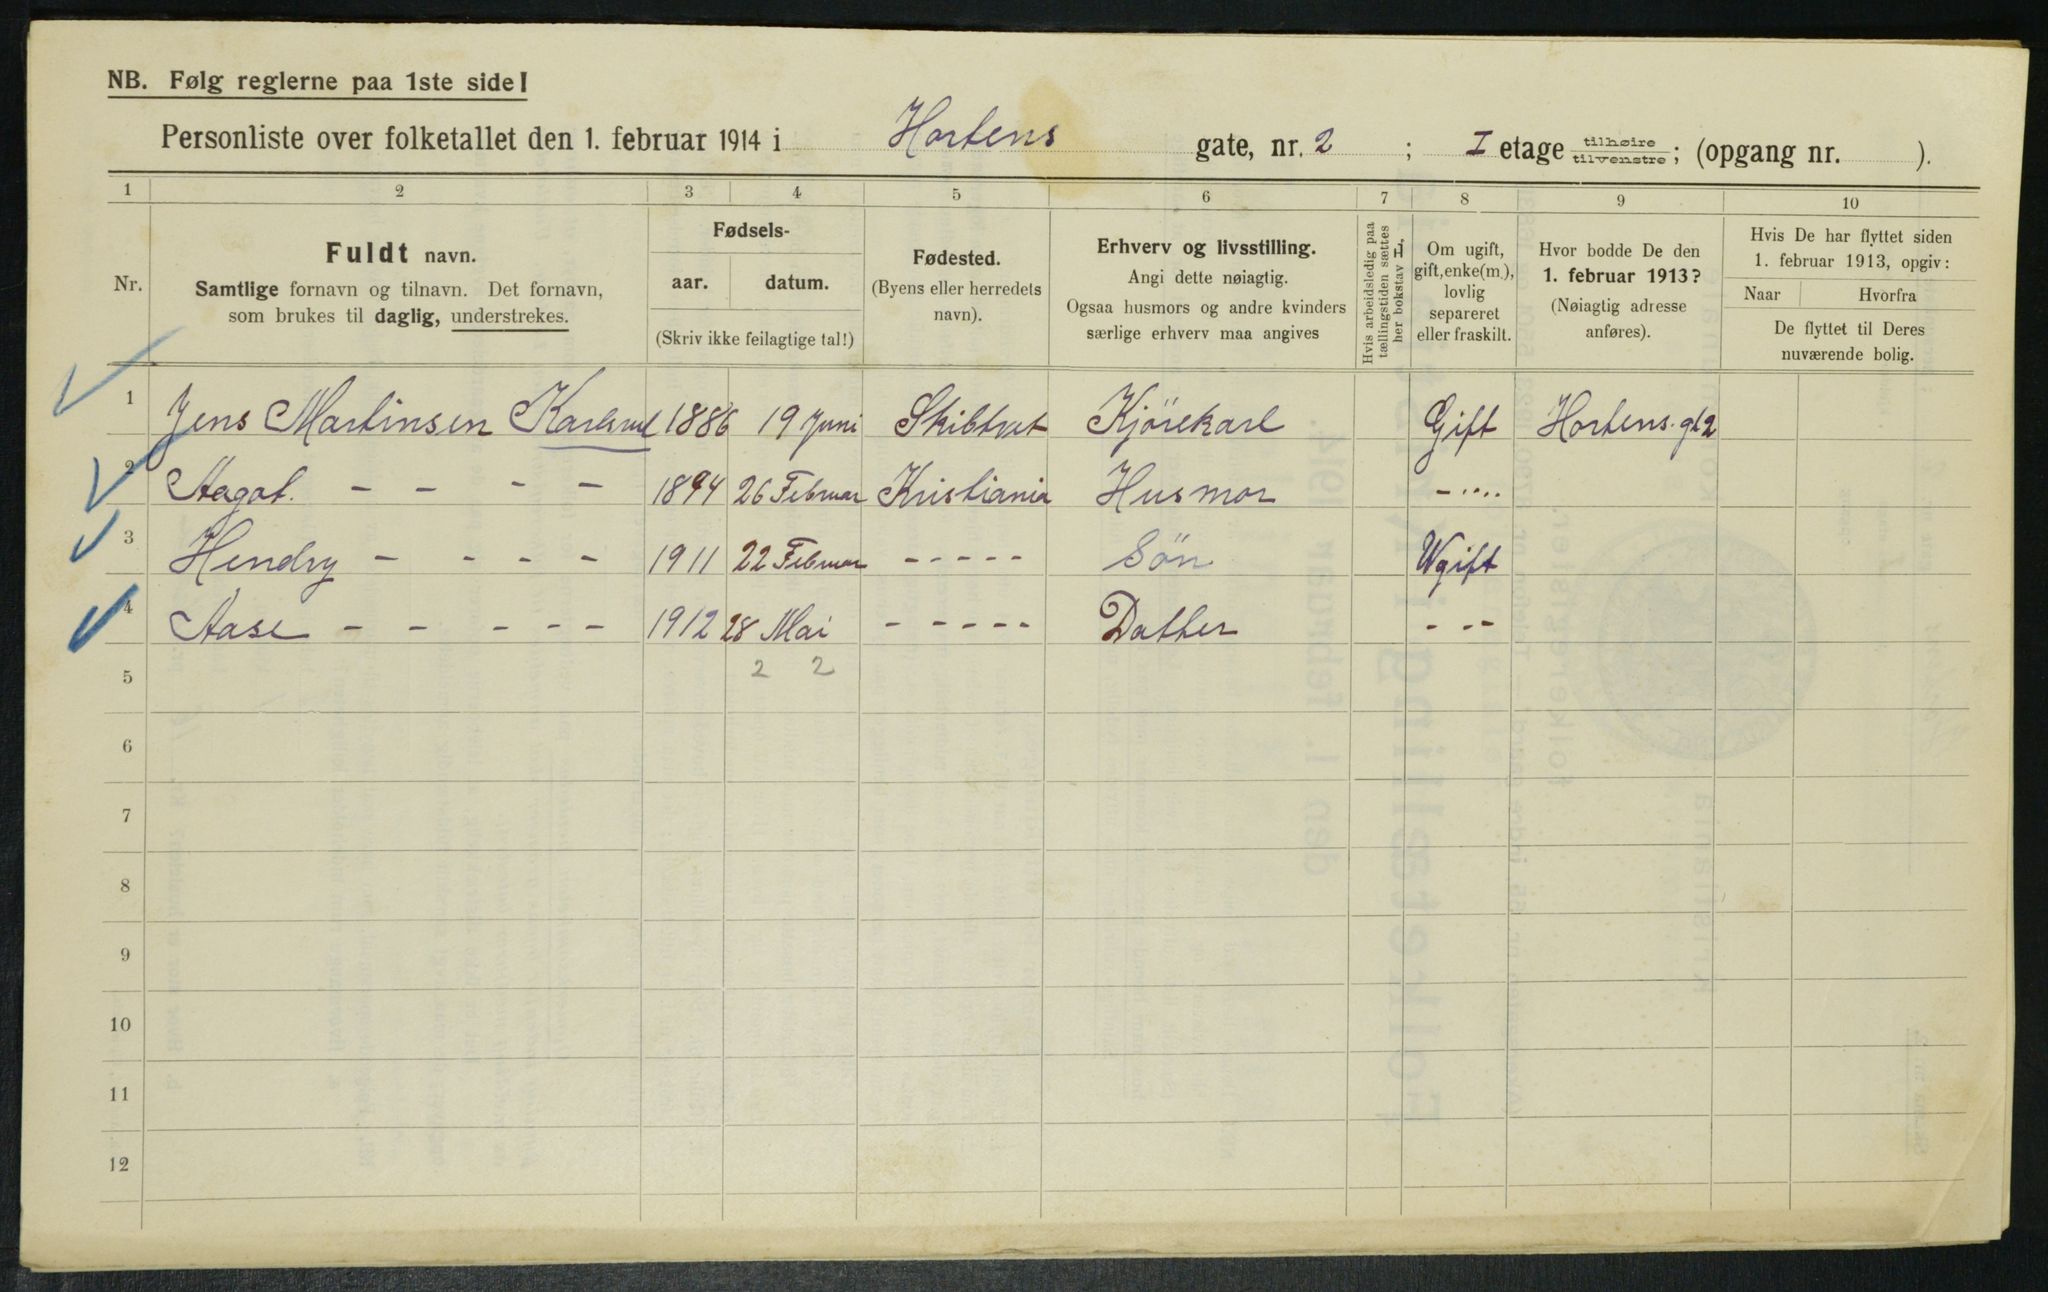 NB. Følg reglerne paa 1ste side!
Personliste over folketallet den 1. februar 1914 i Hortens gate, nr. 2 ; I etage tilhøire tilvenstre; (opgang nr. ).
1 2 3 4 5 6 7 8 9 10
Nr.
Fuldt navn.
Samtlige fornavn og tilnavn. Det fornavn,
som brukes til daglig, understrekes.
Fødsels-
aar. datum.
(Skriv ikke feilagtige tal!)
Fødested.
(Byens eller herredets
navn).
Erhverv og livsstilling.
Angi dette nøiagtig.
Ogsaa husmors og andre kvinders
særlige erhverv maa angives
Hvis arbeidsledig paa
tællingstiden sættes
her bokstav L.
Om ugift,
gift, enke(m.),
lovlig
separeret
eller fraskilt.
Hvor bodde De den
1. februar 1913?
(Nøiagtig adresse
anføres).
Hvis De har flyttet siden
1. februar 1913, opgiv:
Naar Hvorfra
De flyttet til Deres
nuværende bolig.
1 Jens Martinsen 1886 19 Juni Kjørekarl Gift Hortens. gt 2
2 Aagot. - - - - 1894 26 Februar Kristiania Husmor - ....
3 Hendry - - - - 1911 22 Februar - - - - - Søn Ugift
4 Aase - - - - - 1912 28 Mai - - - - - Datter - - -
5 2 2
6
7
8
9
10
11
12